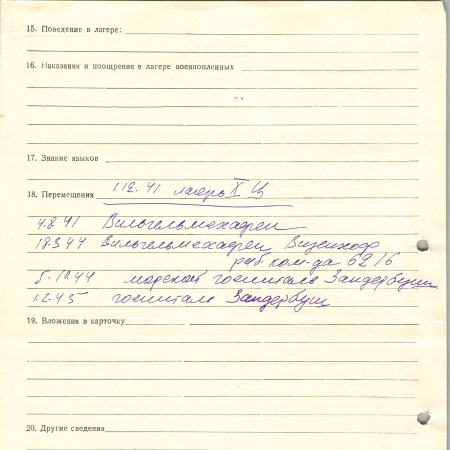 15. Поведение в лагере:
16. Наказания и поощрения в лагере военнопленных
17. Знание языков
18. Перемещения 1.12.41 лагерь X Ц
4.8.41 Вильгельмсхафен
18.3.44 Вильгельмсхафен Визенхоф
раб ком-да 6216
5.10.44 морской госпиталь Зандербуш
1.2.45 госпиталь Зандербуш
19. Вложения в карточку
20. Другие сведения